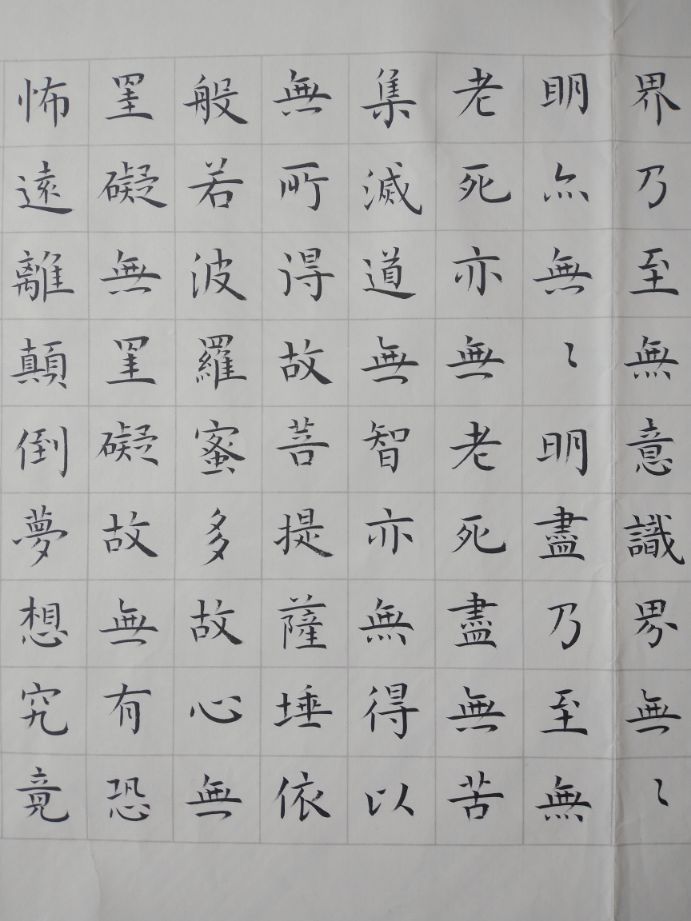 界乃至無意識界無〻
明亦無〻明盡乃至無
老死亦無老死盡無苦
集滅道無智亦無得以
無所得故菩提薩埵依
般若波羅蜜多故心無
罣礙無罣礙故無有恐
怖遠離顛倒夢想究竟